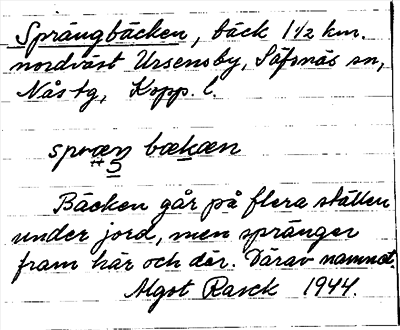 Sprängbäcken, bäck 1 1/2 km.
nordväst Ursensby, Säfsnäs sn,
Nås tg, Kopp. l.
spræŋ bækæn
Bäcken går på flera ställen
under jord, men spränger
fram här och där. Därav namnet.
Algot Rasck 1944.